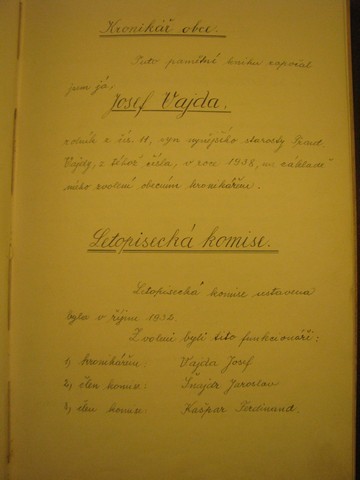 Kronikář obce.
Tuto památní knihu započal
jsem já,
Josef Vajda,
rolník z čís. 11, syn nynějšího starosty Ferd.
Vajdy, z téhož čísla, v roce 1938, na základě
mého zvolení obecním kronikářem.
Letopisecká komise.
Letopisecká komise ustavena
byla v říjnu 1932.
Zvoleni byli tito funkcionáři:
1) kronikářem: Vajda Josef
2) člen komise: Šnajdr Jaroslav
3) člen komise: Kašpar Ferdinand.